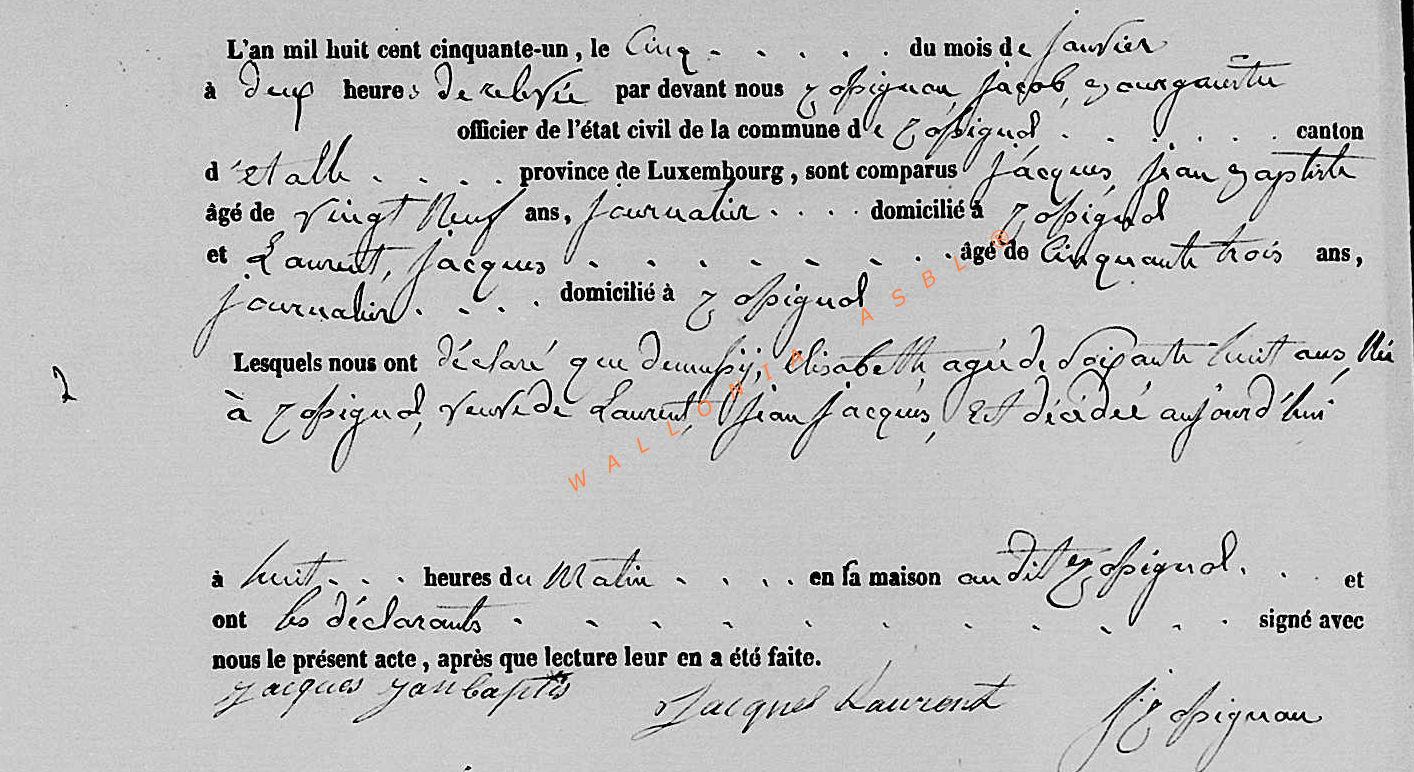 L'an mil huit cent cinquante-un, le Cinq . . . . . du mois de Janvier
à deux heures de relevée par devant nous Rossignon, Jacob,
officier de l'état civil de la commune de Rossignol . . . . . . canton
d'étalle . . . . province de Luxembourg, sont comparus Jacques, Jean Baptiste
âgé de Vingt Neuf ans, Journalier . . . . domicilié à Rossignol
et Laurent, Jacques . . . . . . . . âgé de Cinquante trois ans,
Journalier . . . . domicilié à Rossignol
Lesquels nous ont déclaré que demussy, Elisabeth, agée de Soixante huit ans, Née
2
à Rossignol, Veuve de Laurent, Jean Jacques, Est décédée aujourd'hui
à huit . . . heures du Matin . . . . en sa maison audit Rossignol . . et
ont les déclarants . . . . . . . . . . signé avec
nous le présent acte, après que lecture leur en a été faite.
Jacques Janbaptis Jacques Laurent J. Rossignon
WALLONIA ASBL ®